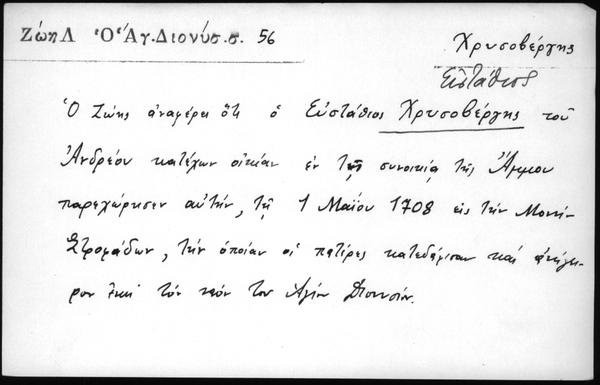 Ζώη Λ Ὁ Ἅγ. Διονύσ. σ. 56
Χρυσοβέργης
Εὐστάθιος
Ὁ Ζώης ἀναφέρει ὅτι ὁ Εὐστάθιος Χρυσοβέργης τοῦ
Ἀνδρέου κατέχων οἰκίαν ἐν τῇ συνοικίᾳ τῆς Ἄμμου
παρεχώρησεν αὐτήν, τῇ 1 Μαΐου 1708 εἰς τὴν Μονὴν
Στροφάδων, τὴν ὁποίαν οἱ πατέρες κατεδάφισαν καὶ ἀνήγει-
ρον ἐκεῖ τὸν ναὸν τοῦ Ἁγίου Διονυσίου.